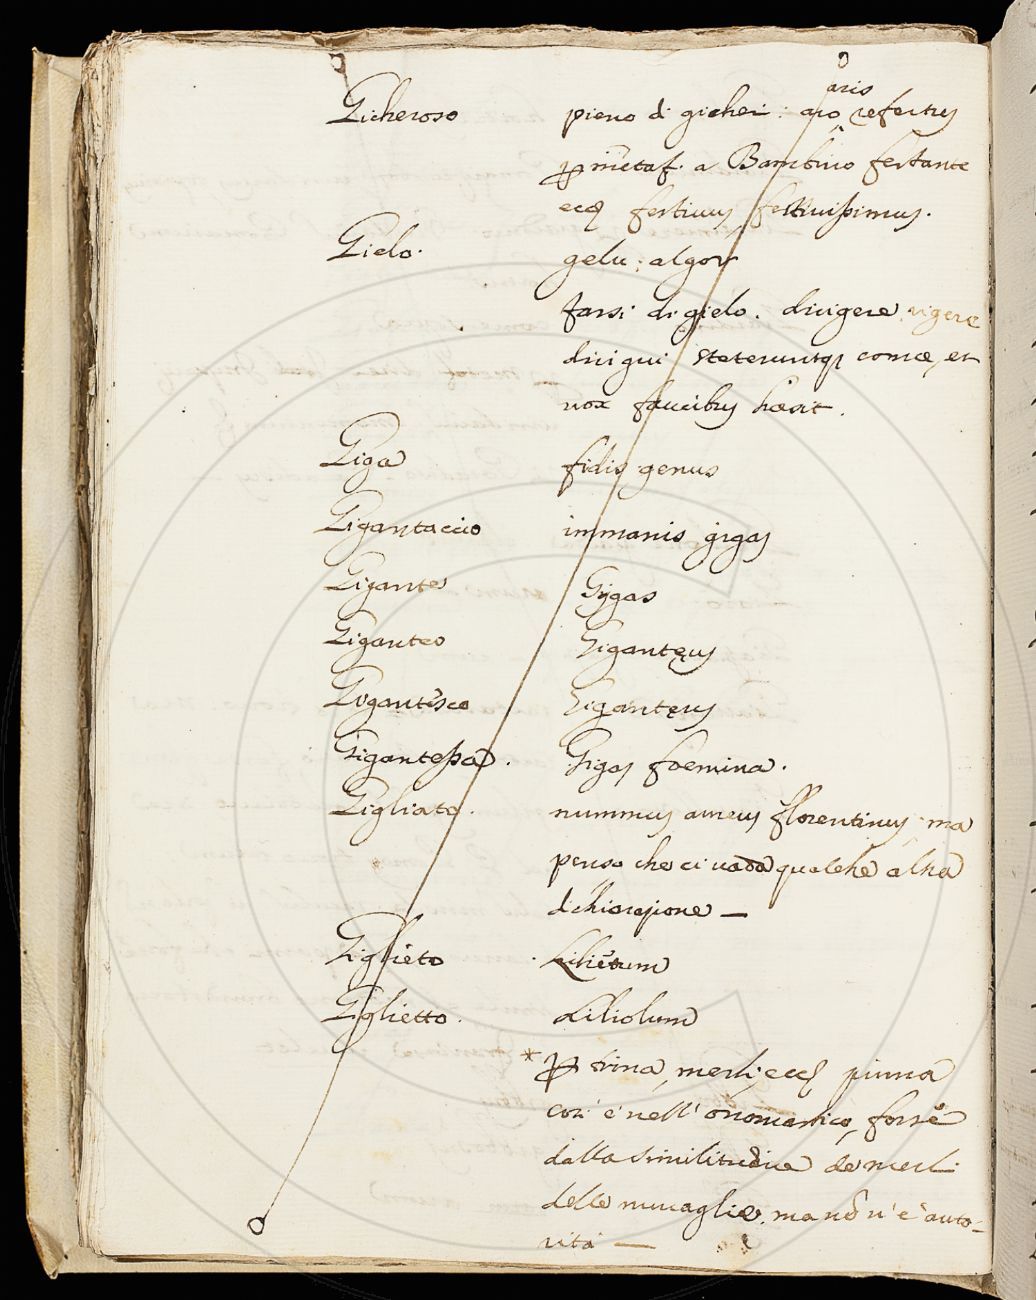 aris
Gicheroso pieno di gicheri: aro refertus
p metaf. a Bambino festante
ecc festivus festivissimus.
Gielo. gelu; algor
farsi di gielo. dirigere rigere
dirigui steteruntq comæ, et
vox faucibus hæsit.
Giga fidis genus
Gigantaccio immanis gigas
Gigante Gygas
Giganteo Gigantęus
Gigantesco Gigantęus
Gigantessa. Gigas foemina.
Gigliato. nummus aureus florentinus, ma
penso che ci vada qualche altra
dichiarazione —
Giglieto Liliétum
Giglietto. Liliolum
* p trina, merli; ecc pinna
così è nell' onomastico, forse
dalla similitudine de merli
delle muraglie. ma nō n' e auto-
rità —